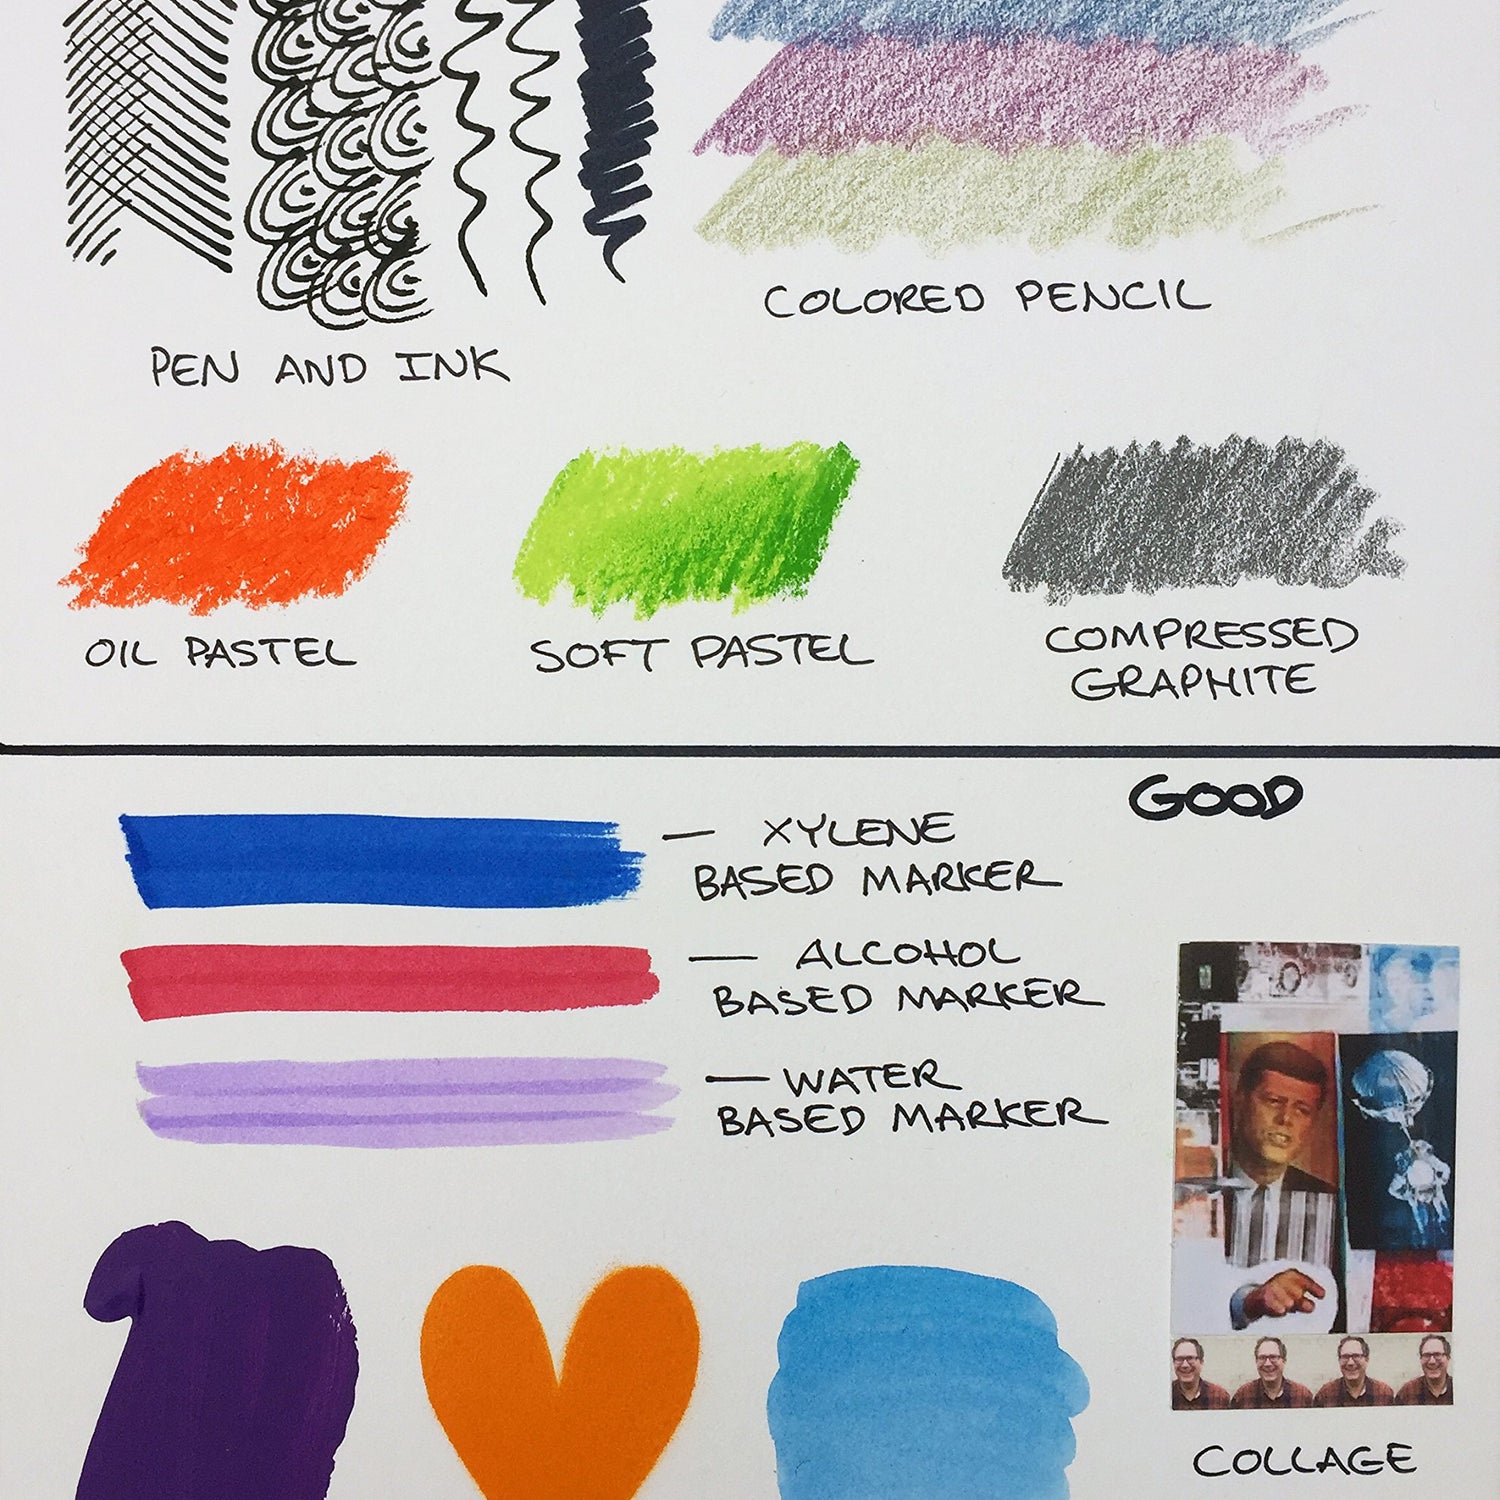 COLORED PENCIL
PEN AND INK
OIL PASTEL
SOFT PASTEL
COMPRESSED
GRAPHITE
GOOD
XYLENE
BASED MARKER
ALCOHOL
BASED MARKER
WATER
BASED MARKER
COLLAGE